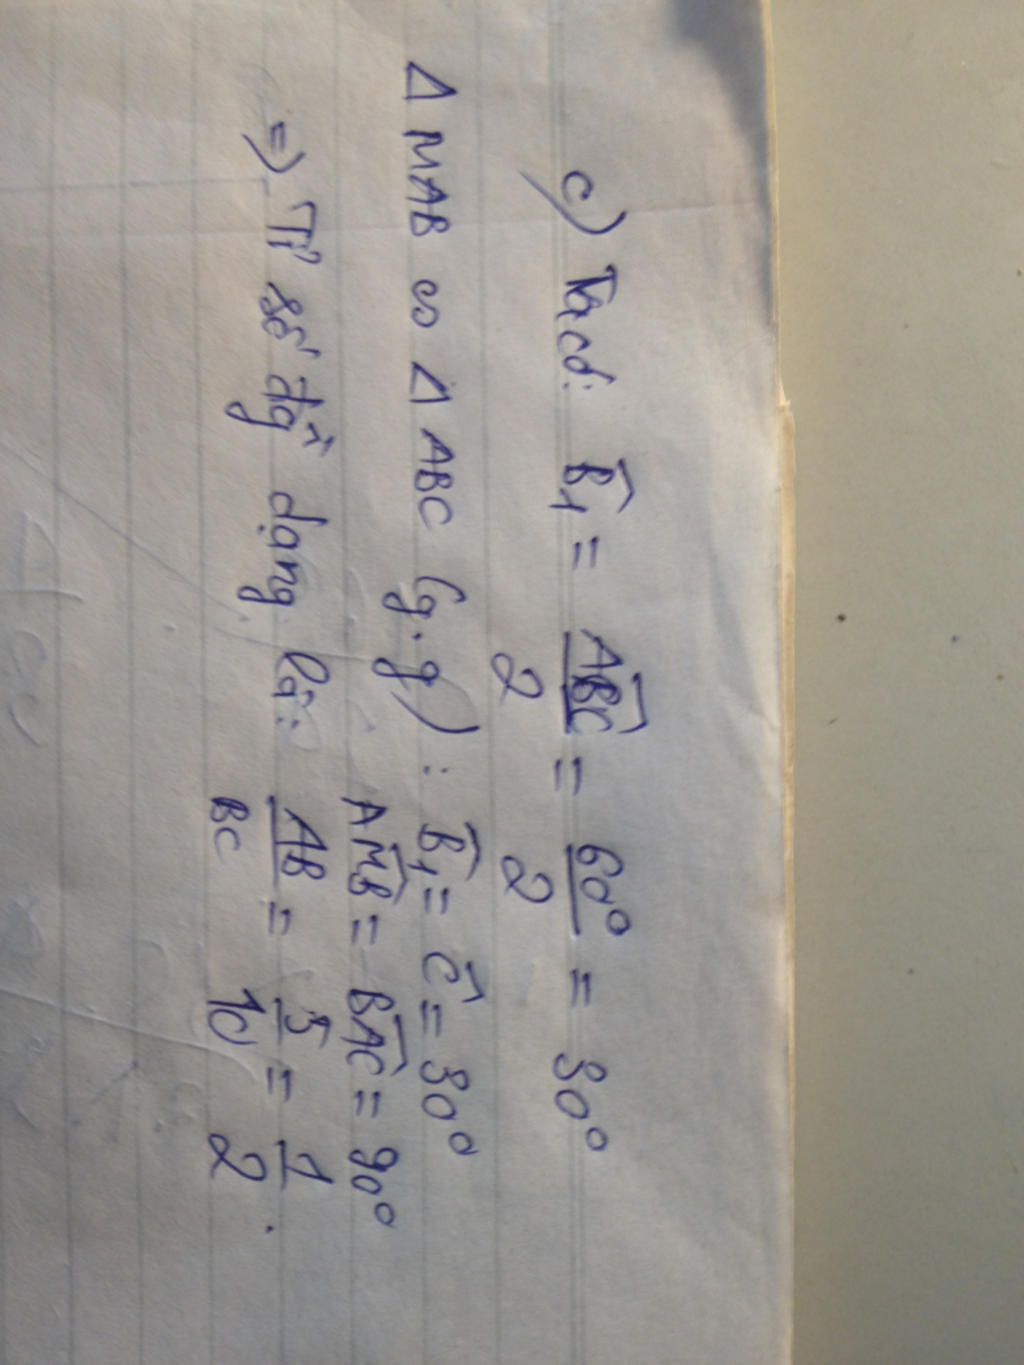 c) Ta có: B̂₁ = \frac{\widehat{ABC}}{2} = \frac{60°}{2} = 30°
Δ MAB ∽ Δ ABC (g.g): B̂₁ = Ĉ = 30°
\widehat{AMB} = \widehat{BAC} = 90°
=) Tỉ số đg̀ dạng là: \frac{AB}{BC} = \frac{5}{10} = \frac{1}{2}.